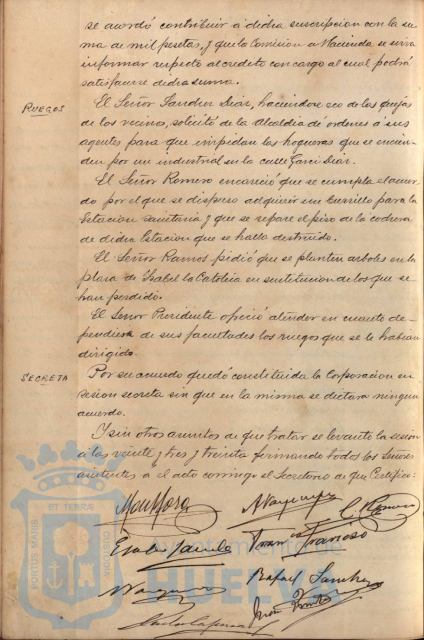 se acordó contribuir á dicha suscripcion con la su-
ma de mil pesetas, y que la Comision de Hacienda se sirva
informar respecto al credito con cargo al cual podrá
satisfacerse dicha suma.
RUEGOS
El Señor Sanchez Diaz, haciendose eco de las quejas
de los vecinos, solicitó de la Alcaldia dé ordenes á sus
agentes para que impidan las hogueras que se encien-
den por un industrial en la calle Garci Diaz.
El Señor Romero encareció que se cumpla el acuer-
do por el que se dispuso adquirir un burrillo para la
Estacion Sanitaria y que se repare el piso de la cochera
de dicha Estacion que se halla destruido.
El Señor Ramos pidió que se planten arboles en la
plaza de Isabel la Catolica en sustitucion de los que se
han perdido.
El Señor Presidente ofreció atender en cuanto de-
pendiera de sus facultades los ruegos que se le habian
dirigido.
SECRETA
Por su acuerdo quedó constituida la Corporacion en
sesion secreta sin que en la misma se dictara ningun
acuerdo.
Y sin otros asuntos de que tratar se levantó la sesion
á las veinte y tres y treinta firmando todos los Señores
asistentes á el acto conmigo el Secretario de que Certifico:
Rafael Sanchez
ET TERRÆ
PORTUS MARIS
CUSTODIA
Ayuntamiento de
HUELVA